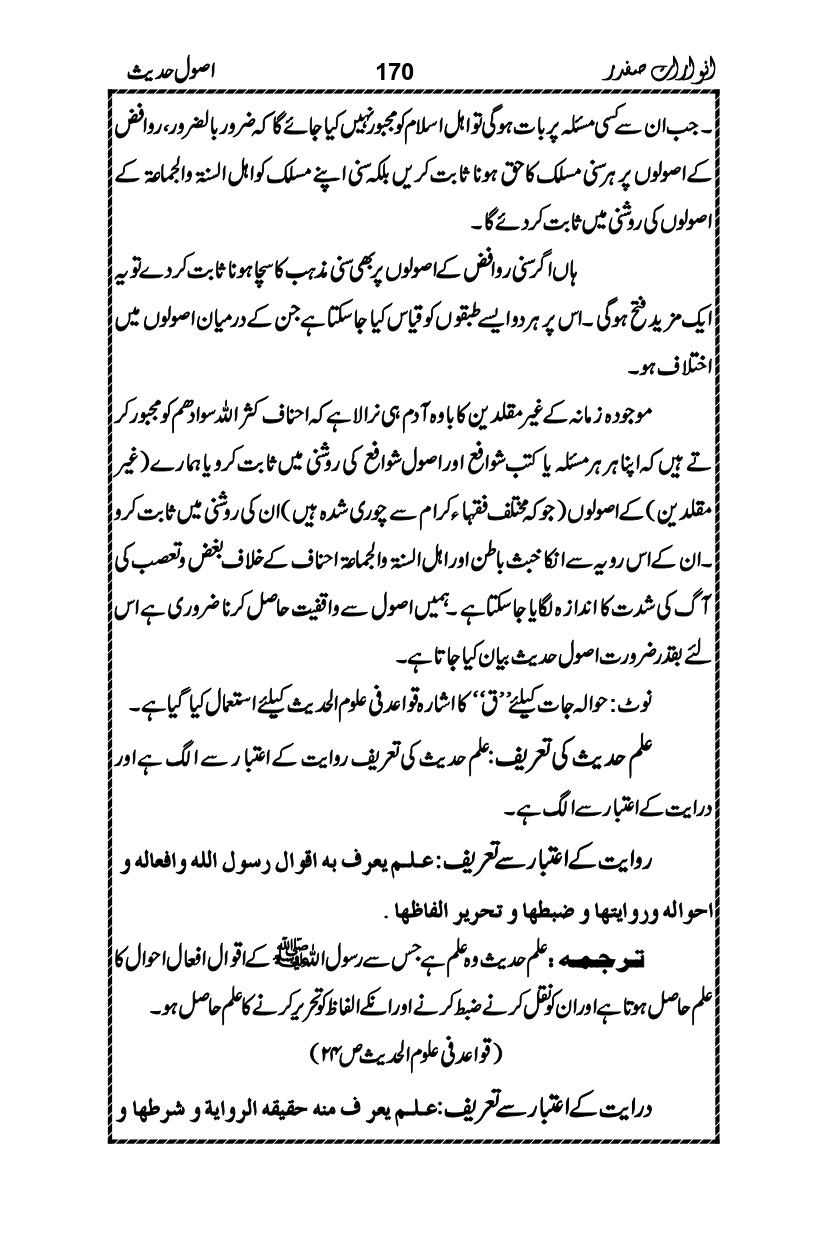 انوارات صفدر 170 اصول حدیث
۔ جب ان سے کسی مسئلہ پر بات ہوگی تو اہل اسلام کو مجبور نہیں کیا جائے گا کہ ضرور بالضرور، روافض
کے اصولوں پر ہر سنی مسلک کا حق ہونا ثابت کریں بلکہ سنی اپنے مسلک کو اہل السنۃ والجماعۃ کے
اصولوں کی روشنی میں ثابت کر دے گا۔
ہاں اگر سنی روافض کے اصولوں پر بھی سنی مذہب کا سچا ہونا ثابت کر دے تو یہ
ایک مزید فتح ہوگی ۔اس پر ہر دو ایسے طبقوں کو قیاس کیا جا سکتا ہے جن کے درمیان اصولوں میں
اختلاف ہو۔
موجودہ زمانہ کے غیر مقلدین کا باوہ آدم ہی نرالا ہے کہ احناف کثر اللہ سوادھم کو مجبور کر
تے ہیں کہ اپنا ہر ہر مسئلہ یا کتب شوافع اور اصول شوافع کی روشنی میں ثابت کرو یا ہمارے (غیر
مقلدین) کے اصولوں (جو کہ مختلف فقہاء کرام سے چوری شدہ ہیں) ان کی روشنی میں ثابت کرو
۔ان کے اس رویہ سے انکا خبث باطن اور اہل السنۃ والجماعۃ احناف کے خلاف بغض و تعصب کی
آگ کی شدت کا اندازہ لگایا جا سکتا ہے ۔ہمیں اصول سے واقفیت حاصل کرنا ضروری ہے اس
لئے بقدر ضرورت اصول حدیث بیان کیا جاتا ہے۔
نوٹ: حوالہ جات کیلئے ’’ق‘‘ کا اشارہ قواعد فی علوم الحدیث کیلئے استعمال کیا گیا ہے۔
علم حدیث کی تعریف: علم حدیث کی تعریف روایت کے اعتبار سے الگ ہے اور
درایت کے اعتبار سے الگ ہے۔
روایت کے اعتبار سے تعریف: علم يعرف به اقوال رسول الله وافعاله و
احواله وروايتها و ضبطها و تحرير الفاظها .
ترجمہ: علم حدیث وہ علم ہے جس سے رسول اللہ ﷺ کے اقوال افعال احوال کا
علم حاصل ہوتا ہے اور ان کو نقل کرنے ضبط کرنے اور انکے الفاظ کو تحریر کرنے کا علم حاصل ہو۔
(قواعد فی علوم الحدیث ص ۲۴)
درایت کے اعتبار سے تعریف: علم يعر ف منه حقيقه الرواية و شرطها و